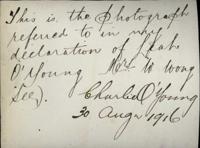 This is the Photograph
referred to in my
declaration of
O'Young Wong
See).
Charlie O'Young
30 Aug 1916